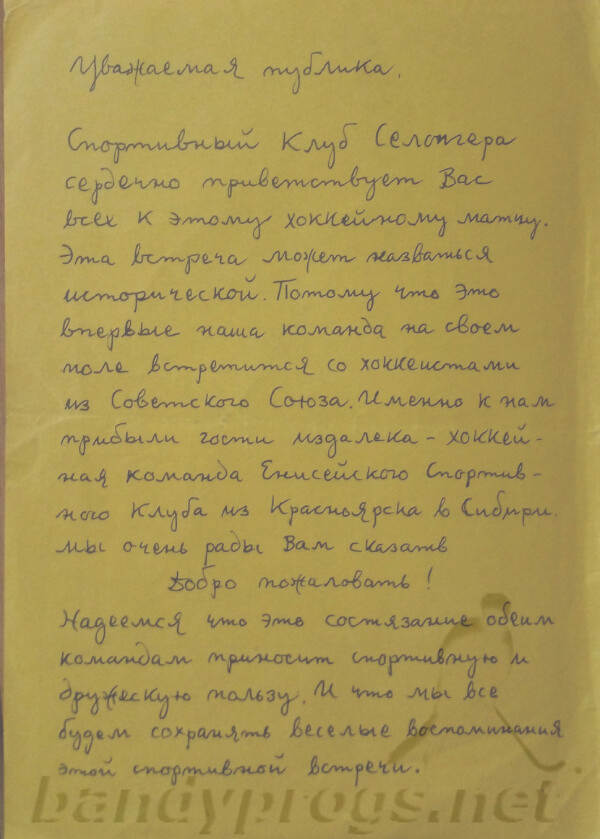 Уважаемая публика.
Спортивный Клуб Селонгера
сердечно приветствует Вас
всех к этому хоккейному матчу.
Эта встреча может назваться
исторической. Потому что это
впервые наша команда на своем
поле встретится со хоккеистами
из Советского Союза. Именно к нам
прибыли гости издалека – хоккей-
ная команда Енисейского Спортив-
ного Клуба из Красноярска в Сибири.
мы очень рады Вам сказать
Добро пожаловать!
Надеемся что это состязание обеим
командам приносит спортивную и
дружескую пользу. И что мы все
будем сохранять веселые воспоминания
этой спортивной встречи.
bandyprogs.net